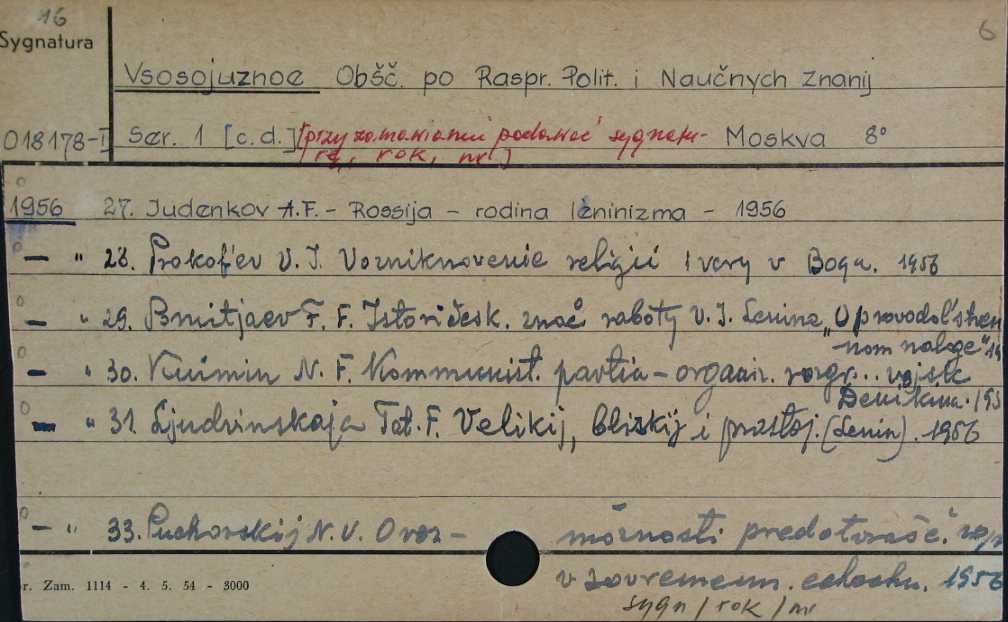 16
6
Sygnatura
Vsosojuznoe Obšč. po Raspr. Polit. i Naučnych Znanij
018178-I Ser. 1 [c.d.] [przy zamawianiu podawać sygnatu- Moskva 8°
rę, rok, nr]
1956 27. Judenkov A.F. - Rossija - rodina leninizma - 1956
— " 28. Prokof'ev V. I. Vozniknovenie religii i very v Boga. 1956
— " 29. F. F. Istoričesk. znač. raboty V. I. Lenina „O prodovol'stven
nom naloge"
— " 30. Kuz'min N. F. Kommunist. partia - organiz. razgr. vojsk
Denikina. 195
— " 31. Ljudvinskaja Tat. F. Velikij, blizkij i prostoj. (Lenin). 1956
— " 33. Puchovskij N. V. O voz- možnosti predotvrašč.
v sovremenn. epochu. 1956
r. Zam. 1114 - 4. 5. 54 - 3000
sygn / rok / nr